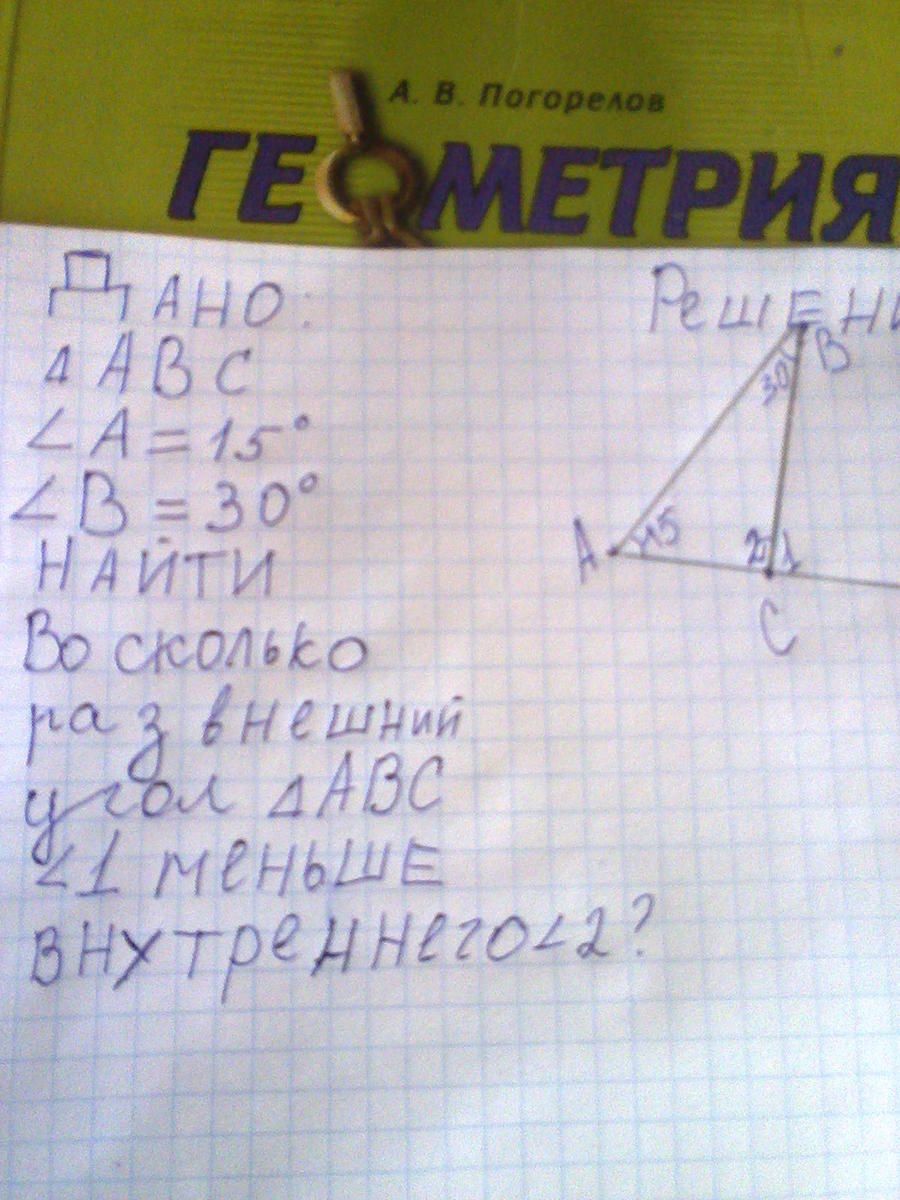 А. В. Погорелов
ГЕОМЕТРИЯ
ДАНО:
△ABC
∠A = 15°
∠B = 30°
НАЙТИ
Во сколько
раз внешний
угол △ABC
∠1 меньше
внутреннего∠2?
РЕШЕНИ
B
30
A
15
2
1
C